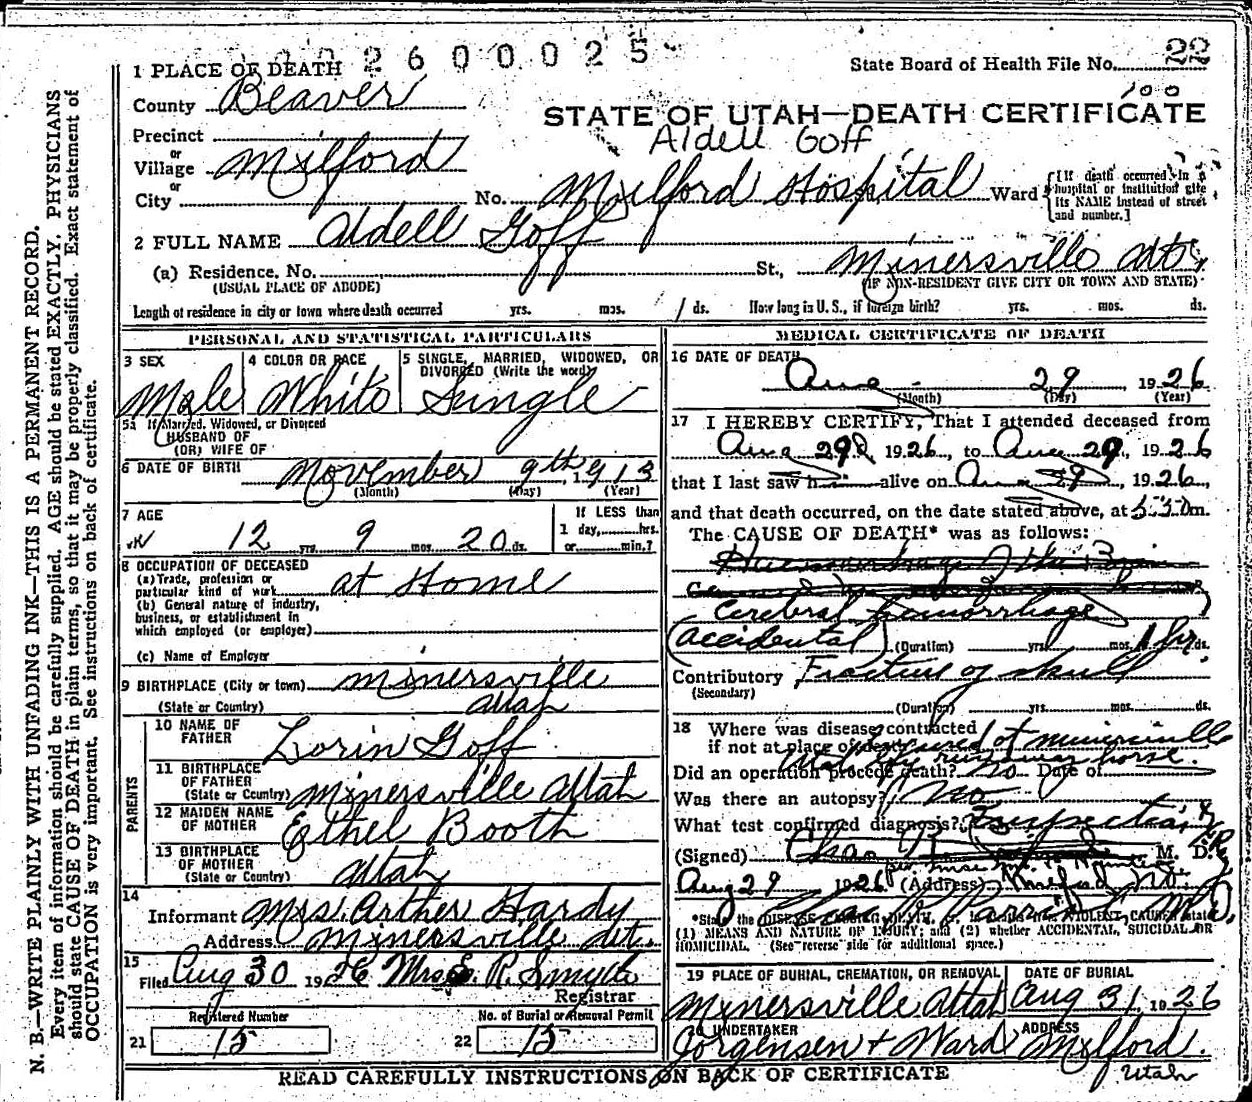 2600025
State Board of Health File No. 22
100
STATE OF UTAH—DEATH CERTIFICATE
Aldell Goff
1 PLACE OF DEATH
County Beaver
Precinct
or
Village Milford
or
City
No. Milford Hospital Ward
[If death occurred in a hospital or institution give its NAME instead of street and number.]
2 FULL NAME Aldell Goff
(a) Residence. No. St., Minersville
(USUAL PLACE OF ABODE) (IF NON-RESIDENT GIVE CITY OR TOWN AND STATE)
Length of residence in city or town where death occurred yrs. mos. 1 ds. How long in U. S., if foreign birth? yrs. mos. ds.
PERSONAL AND STATISTICAL PARTICULARS
3 SEX
Male
4 COLOR OR RACE
White
5 SINGLE, MARRIED, WIDOWED, OR
DIVORCED (Write the word)
Single
5a If Married, Widowed, or Divorced
HUSBAND OF
(OR) WIFE OF
6 DATE OF BIRTH November 9th, 1913
(Month) (Day) (Year)
7 AGE
12 yrs. 9 mos. 20 ds.
If LESS than
1 day, hrs.
or min.?
8 OCCUPATION OF DECEASED
(a) Trade, profession or
particular kind of work at Home
(b) General nature of industry,
business, or establishment in
which employed (or employer)
(c) Name of Employer
9 BIRTHPLACE (City or town) Minersville
(State or Country) Utah
PARENTS
10 NAME OF
FATHER Lorin Goff
11 BIRTHPLACE
OF FATHER
(State or Country) Minersville Utah
12 MAIDEN NAME
OF MOTHER Ethel Booth
13 BIRTHPLACE
OF MOTHER
(State or Country) Utah
14
Informant Mrs. Arther Hardy
Address Minersville Ut.
15
Filed Aug 30 1926 Mrs. E. R. Smyth
Registrar
Registered Number
21 15
No. of Burial or Removal Permit
22 15
MEDICAL CERTIFICATE OF DEATH
16 DATE OF DEATH
Aug 29 1926
(Month) (Day) (Year)
17 I HEREBY CERTIFY, That I attended deceased from
Aug 29, 1926, to Aug 29, 1926
that I last saw h alive on Aug 29, 1926,
and that death occurred, on the date stated above, at 5:50 m.
The CAUSE OF DEATH* was as follows:
Cerebral hemorrhage
(accidental) (Duration) yrs. mos. 1 hr ds.
Contributory Fracture of skull
(Secondary)
(Duration) yrs. mos. ds.
18 Where was disease contracted
if not at place of death? at Minersville
Utah by runaway horse.
Did an operation precede death? No Date of
Was there an autopsy? No
What test confirmed diagnosis? Inspection
(Signed) M. D.
Aug 29 1926 (Address) Milford
*State the DISEASE CAUSING DEATH, or, in deaths from VIOLENT CAUSES state
(1) MEANS AND NATURE OF INJURY; and (2) whether ACCIDENTAL, SUICIDAL OR
HOMICIDAL. (See reverse side for additional space.)
19 PLACE OF BURIAL, CREMATION, OR REMOVAL
Minersville Utah
DATE OF BURIAL
Aug 31 1926
20 UNDERTAKER
Jorgensen + Ward
ADDRESS
Milford.
Utah
READ CAREFULLY INSTRUCTIONS ON BACK OF CERTIFICATE
N. B.—WRITE PLAINLY WITH UNFADING INK—THIS IS A PERMANENT RECORD.
Every item of information should be carefully supplied. AGE should be stated EXACTLY. PHYSICIANS
should state CAUSE OF DEATH in plain terms, so that it may be properly classified. Exact statement of
OCCUPATION is very important. See instructions on back of certificate.